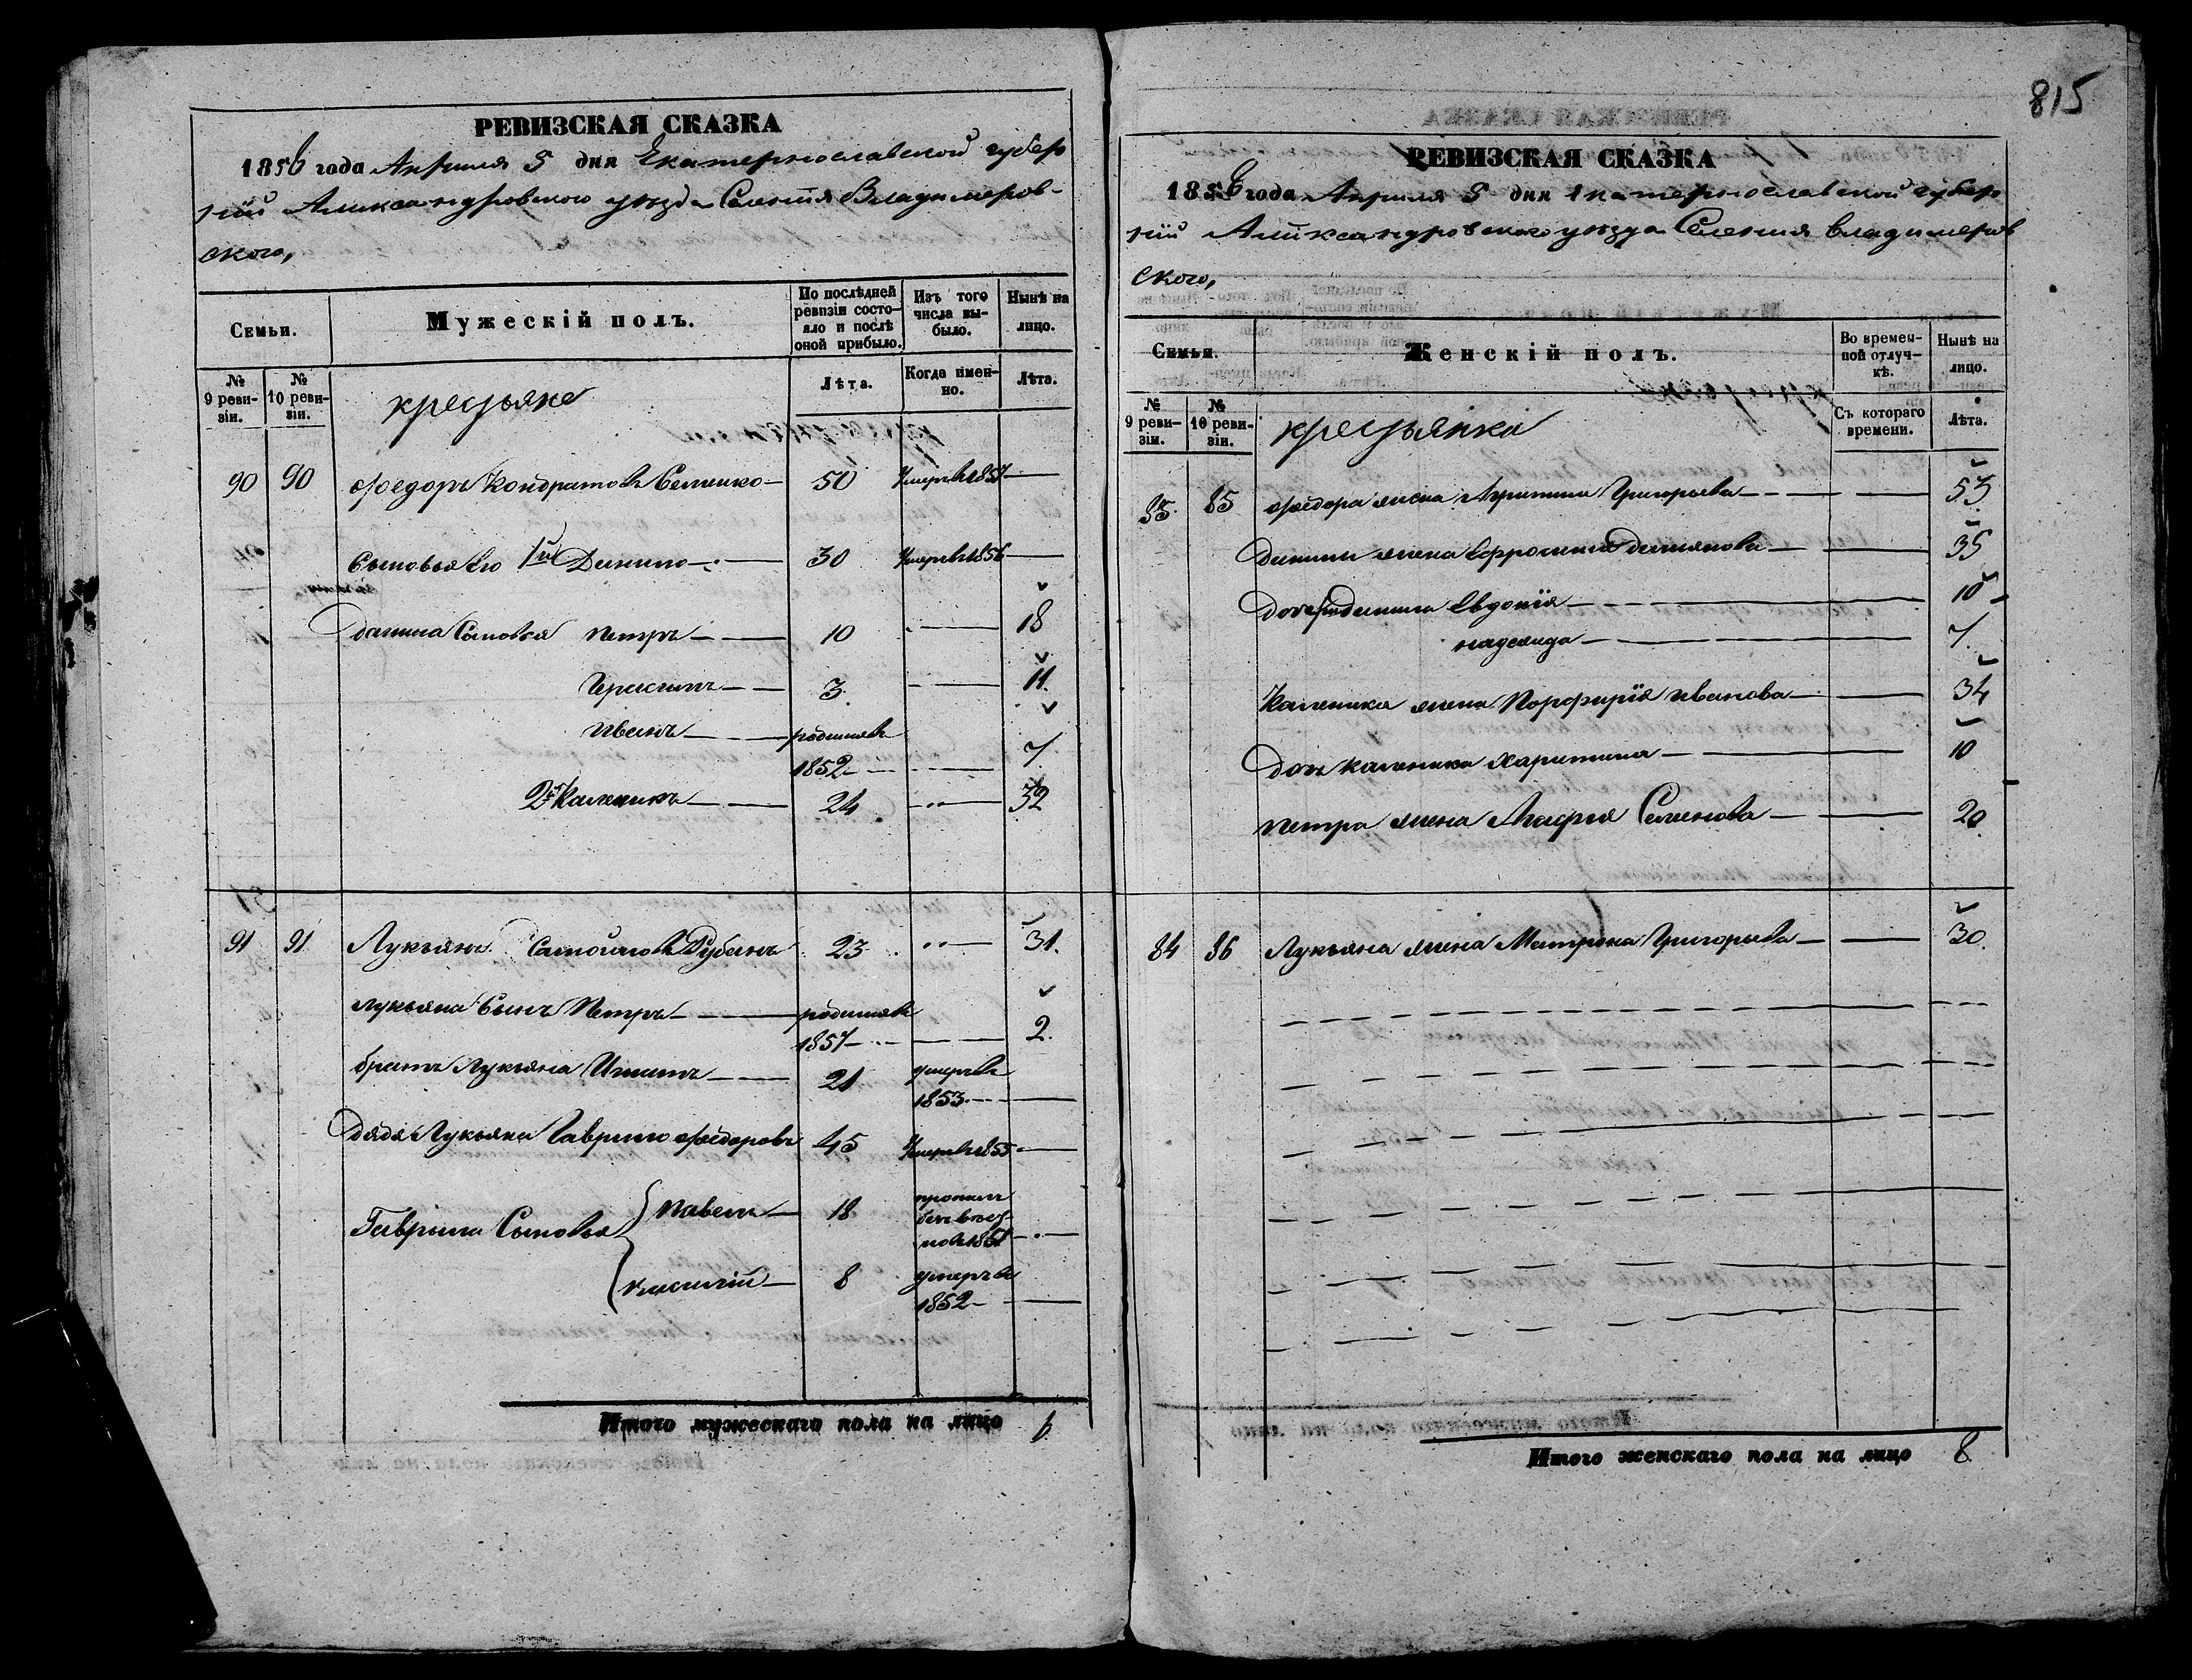 815
РЕВИЗСКАЯ СКАЗКА
1856 года Апреля 5 дня Екатеринославской губер
ніи Александровского уезда Селенія Владимеров-
ского,
Семьи.
Мужескій полъ.
По послѣдней ревизіи состояло и послѣ оной прибыло.
Изъ того числа выбыло.
Нынѣ на лицо.
№ 9 ревизіи.
№ 10 ревизіи.
крестьяне
Лѣта.
Когда именно.
Лѣта.
90 90 Федоръ Кондратовъ 50 Умеръ 1851
Сыновья Его 1й Данило 30 Умеръ 1856
Данила Сыновья Петръ 10 18
Герасимъ 3. 11.
Иванъ родился
1852 7
2й Каленикъ 24 32
91 91 Лукьянъ Самойловъ 23 31.
Лукьяна Сынъ Петръ родился
1857 2.
братъ Лукьяна 21 умеръ
1853
Дядя Лукьяна Гаврило Федоровъ 45 Умеръ 1855
Гаврила Сыновья Павелъ 18
Василій 8 умеръ
1852
Итого мужескаго пола на лицо
РЕВИЗСКАЯ СКАЗКА
1856 года Апреля 5 дня Екатеринославской губер
ніи Александровского уезда Селенія Владимеров
ского,
Семьи.
Женскій полъ.
Во временной отлучкѣ.
Нынѣ на лицо.
№ 9 ревизіи.
№ 10 ревизіи.
крестьянки
Съ котораго времени.
Лѣта.
85 85 Федора жена Григорьева 53
Данилы жена Ефросинія 35
Данила Евдокія 10
Надежда 7
Каленика жена Порфирія Иванова 34
Дочь Каленика Харитина 10
Петра жена Агафія Семенова 20
84 86 Лукьяна жена Матрона Григорьева 30.
Итого женскаго пола на лицо 8